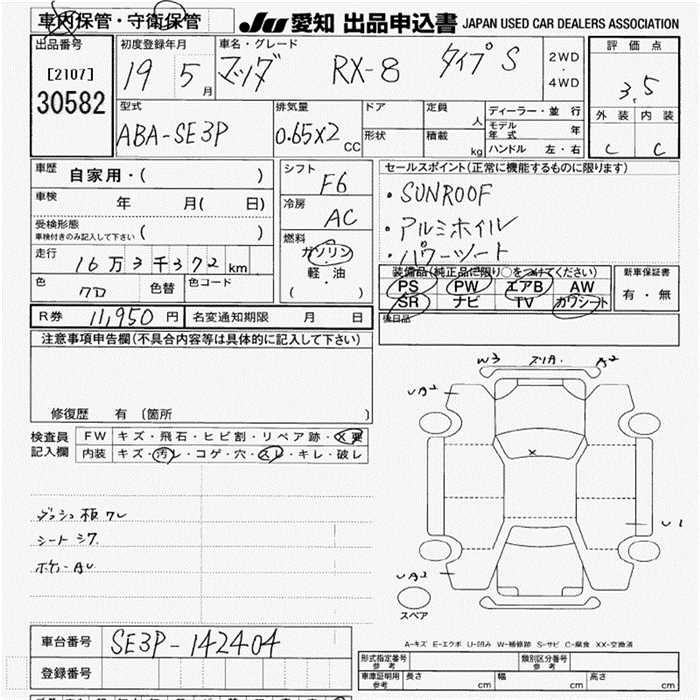 車内保管・守衛保管 JU 愛知 出品申込書 JAPAN USED CAR DEALERS ASSOCIATION
出品番号 初度登録年月 車名・グレード 評価点
[2107] 19 5 月 マツダ RX-8 タイプS 2WD・4WD 3.5
30582
型式 排気量 ドア 定員 人 ディーラー・並行 外装 内装
ABA-SE3P 0.65×2 CC 形状 積載 kg モデル年式 年 C C
ハンドル 左・右
車歴 自家用・( ) シフト F6 セールスポイント(正常に機能するものに限ります)
車検 年 月( 日) 冷房 AC ・SUNROOF
受検形態 車検付きのみ記入して下さい ( ) 燃料 ガソリン ・アルミホイル
走行 16万3千372km 軽・油 ・パワーシート
色 クロ 色替 色コード ( ) 装備品(純正品に限り○をつけてください) 新車保証書
PS PW エアB AW 有・無
SR ナビ TV カワシート
R券 11,950円 名変通知期限 月 日 後日品
注意事項申告欄(不具合内容等は具体的に記入して下さい)
W3 A2
UA2
修復歴 有 (箇所 )
検査員記入欄 FW キズ・飛石・ヒビ割・リペア跡・X要
内装 キズ・汚レ・コゲ・穴・スレ・キレ・破レ
×
U1
UA2
スペア
A-キズ E-エクボ U-凹み W-補修跡 S-サビ C-腐食 XX-交換済
車台番号 SE3P-142404
登録番号
形式指定番号 参考 類別区分番号 参考
車庫証明用 参考 長さ cm 幅 cm 高さ cm